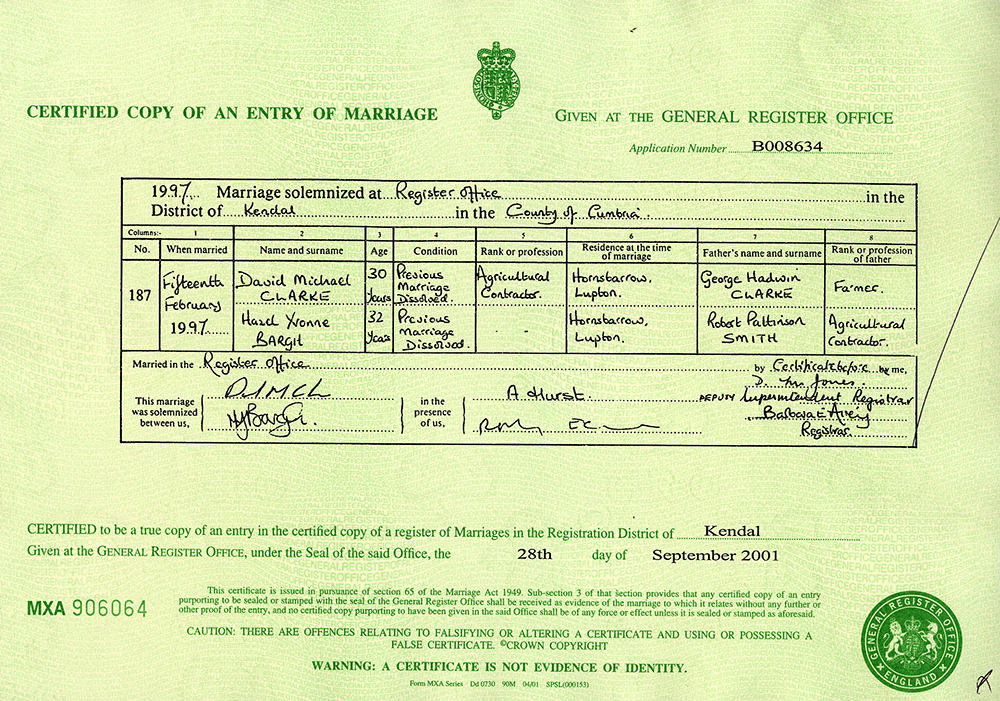 CERTIFIED COPY OF AN ENTRY OF MARRIAGE
GIVEN AT THE GENERAL REGISTER OFFICE
Application Number B008634
1997 Marriage solemnized at Register Office in the
District of Kendal in the County of Cumbria.
Columns:- 1 2 3 4 5 6 7 8
No. When married Name and surname Age Condition Rank or profession Residence at the time of marriage Father's name and surname Rank or profession of father
187 Fifteenth February 1997 David Michael CLARKE 30 years Previous Marriage Dissolved. Agricultural Contractor. Hornsbarrow, Lupton. George Hadwin CLARKE Farmer.
Hazel Yvonne BARGH 32 years Previous Marriage Dissolved. Hornsbarrow, Lupton. Robert Pattinson SMITH Agricultural Contractor.
Married in the Register Office by Certificate before by me,
This marriage was solemnized between us,
in the presence of us,
A Hurst.
D. M Jones.
DEPUTY Superintendent Registrar
Barbara Avery
Registrar
CERTIFIED to be a true copy of an entry in the certified copy of a register of Marriages in the Registration District of Kendal
Given at the GENERAL REGISTER OFFICE, under the Seal of the said Office, the 28th day of September 2001
MXA 906064
This certificate is issued in pursuance of section 65 of the Marriage Act 1949. Sub-section 3 of that section provides that any certified copy of an entry
purporting to be sealed or stamped with the seal of the General Register Office shall be received as evidence of the marriage to which it relates without any further or
other proof of the entry, and no certified copy purporting to have been given in the said Office shall be of any force or effect unless it is sealed or stamped as aforesaid.
CAUTION: THERE ARE OFFENCES RELATING TO FALSIFYING OR ALTERING A CERTIFICATE AND USING OR POSSESSING A
FALSE CERTIFICATE. ©CROWN COPYRIGHT
WARNING: A CERTIFICATE IS NOT EVIDENCE OF IDENTITY.
Form MXA Series Dd 0730 90M 04/01 SPSL(000153)
GENERAL REGISTER OFFICE
ENGLAND